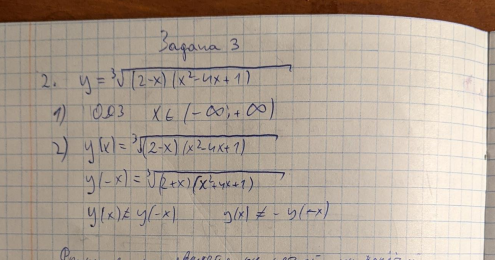 Задача 3
2. y = ∛((2-x)(x²-4x+1))
1) ООЗ x ∈ (-∞; +∞)
2) y(x) = ∛((2-x)(x²-4x+1))
y(-x) = ∛((2+x)(x²+4x+1))
y(x) ≠ y(-x) y(x) ≠ - y(-x)